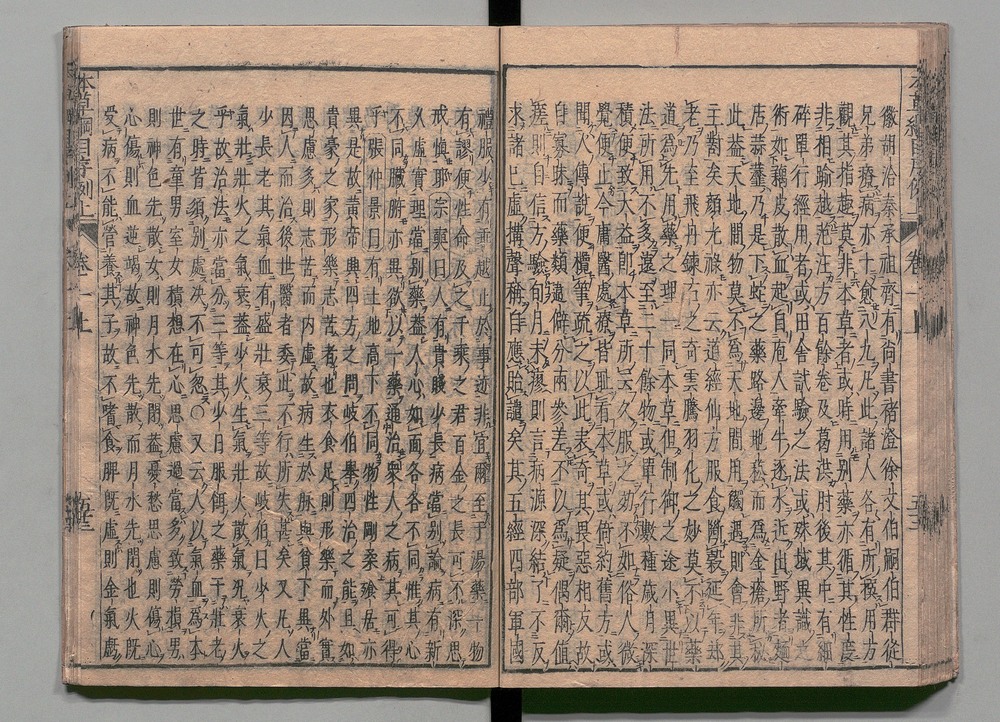 徽胡洽秦承祖齊有尚書褚澄徐文伯嗣伯群從
兄弟療病亦十愈八九凡此諸人各有所撰用方
觀其指趣莫非本草者或時用別藥亦循其性度
非相踰越范汪方百餘卷及葛洪肘後其中有細
碎單行經用者或田舍試驗之法或殊域異識之
術如藕皮散血起自庖人牽牛逐水近出野老麪
店蒜虀乃是下蛇之藥路邊地菘而為金瘡所秘
此蓋天地間物莫不為天地間用觸遇則會非其
主對矣顏光祿亦云道經仙方服食斷穀延年却
老乃至飛丹鍊石之奇雲騰羽化之妙莫不以藥
道為先用藥之理一同本草但制御之途小異世
法所用不多遠至二十餘物或單行數種歲月深
積便致大益即本草所云久服之効不如俗人微
覺便止今庸醫處療皆耻看本草或倚約舊方或
聞人傳說便攬筆疏之以此表奇其畏惡相反故
自寡昧而藥類違僻分兩參差不以為疑偶爾值
差則自信方驗旬月未瘳則言病源深結了不反
求諸己虛構聲稱自應貽譴矣其五經四部軍國
禮服少有乖越止於事迹非宜爾至于湯藥一物
有謬便性命及之千乘之君百金之長可不深思
戒慎耶宗奭曰人有貴賤少長病當別論病有新
久虛實理當別藥蓋人心如面各各不同惟其心
不同臟腑亦異欲以一藥通治衆人之病其可得
乎張仲景曰有土地高下不同物性剛柔飡居亦
異是故黃帝興四方之問岐伯舉四治之能且如
貴豪之家形樂志苦者也衣食足則形樂而外實
思慮多則志苦而內虛故病生於脉與貧下異當
因人而治後世醫者委此不行所失甚矣又凡人
少長老其氣血有盛壯衰三等故岐伯曰少火之
氣壯壯火之氣衰蓋少火生氣壯火散氣况衰火
乎故治法亦當分三等其少日服餌之藥于壯老
之時皆須別處決不可忽○又云人以氣血為本
世有童男室女積想在心思慮過當多致勞損男
則神色先散女則月水先閉蓋憂愁思慮則傷心
心傷則血逆竭故神色先散而月水先閉也火既
受病不能營養其子故不嗜食脾既虛則金氣虧
本草綱目序例上 卷一上